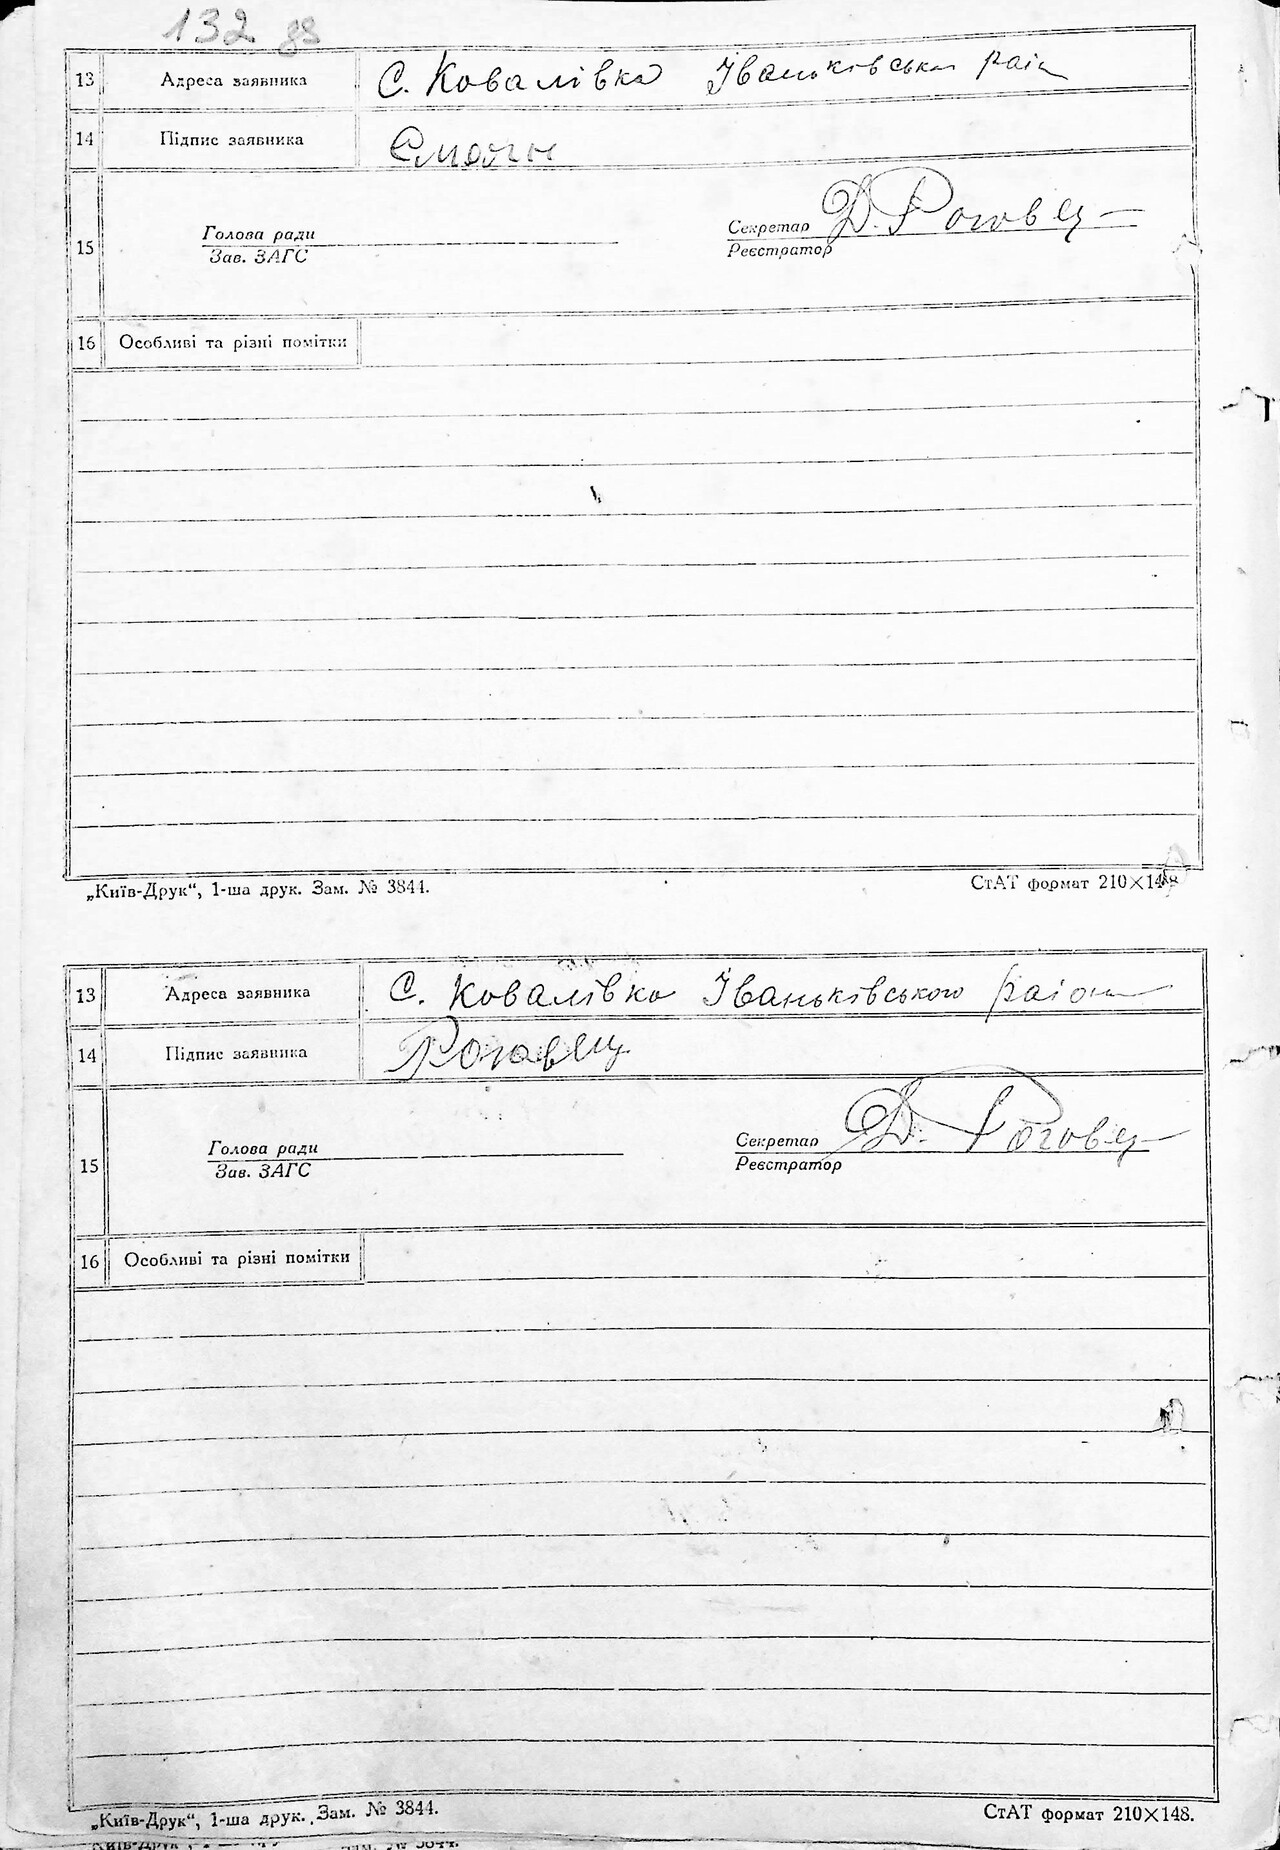 132 зв
13 Адреса заявника С. Ковалівка Іваньківська раїн
14 Підпис заявника
Голова ради Секретар Д. Роговец
15 Зав. ЗАГС Реєстратор
16 Особливі та різні помітки
„Київ-Друк“, 1-ша друк. Зам. № 3844. СтАТ формат 210×148
13 Адреса заявника С. Ковалівка Іваньківського раіону
14 Підпис заявника Роговец
Голова ради Секретар Д. Роговец
15 Зав. ЗАГС Реєстратор
16 Особливі та різні помітки
„Київ-Друк“, 1-ша друк. Зам. № 3844. СтАТ формат 210×148.